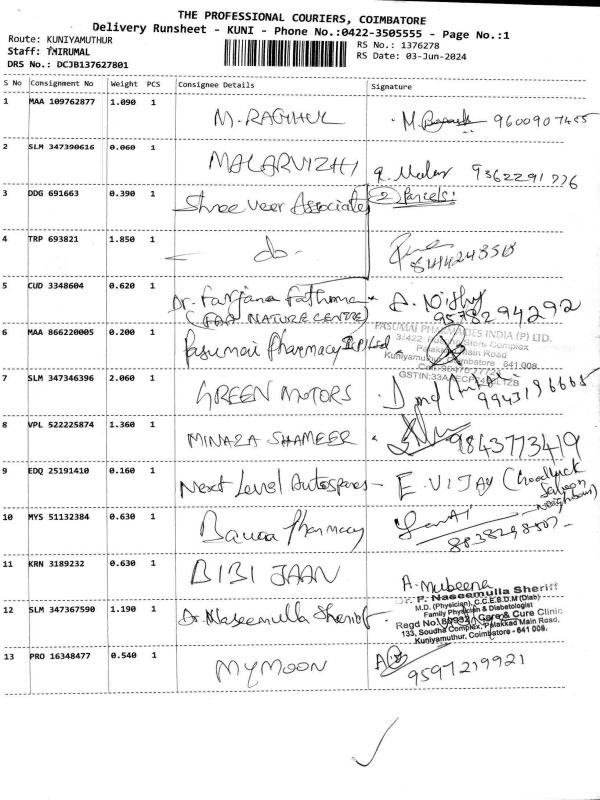 THE PROFESSIONAL COURIERS, COIMBATORE
Delivery Runsheet - KUNI - Phone No.:0422-3505555 - Page No.:1
Route: KUNIYAMUTHUR
RS No.: 1376278
Staff: THIRUMAL
RS Date: 03-Jun-2024
DRS No.: DCJB137627801
S No Consignment No Weight PCS Consignee Details Signature
1 MAA 109762877 1.090 1 M. RAGHUL M. 9600907455
2 SLM 347390616 0.060 1 MALARVIZHI 9362291776
3 DDG 691663 0.390 1 Shree Veer Associates (2) Parcels:
4 TRP 693821 1.850 1 do-
5 CUD 3348604 0.620 1 Dr. Farjana Fathima
(FAA NATURE CENTRE) 9578294292
6 MAA 866220005 0.200 1 Pasumai Pharmacy (P) Ltd.
PASUMAI PHARMACIES INDIA (P) LTD.
3/422 Store Complex
Palakkad Main Road
Kuniyamuthur, Coimbatore 641 008.
7 SLM 347346396 2.060 1 GREEN MOTORS 9943196665
8 VPL 522225874 1.360 1 MINAZA SHAMEER 9843773419
9 EDQ 25191410 0.160 1 Next Level Autospares - E. VIJAY (Goodluck Saloon Neighbour)
10 MYS 51132384 0.630 1 Pharmacy
11 KRN 3189232 0.630 1 BIBI JAAN A. Mubeena
12 SLM 347367590 1.190 1 Dr. Naseemulla Sheriff
Dr. P. Naseemulla Sheriff
M.D. (Physician), C.C.E.B.D.M (Diab)
Family Physician & Diabetologist
Regd No. Care & Cure Clinic
133, Soudha Complex, Palakkad Main Road,
Kuniyamuthur, Coimbatore - 641 008.
13 PRO 16348477 0.540 1 MYMOON 9597219921